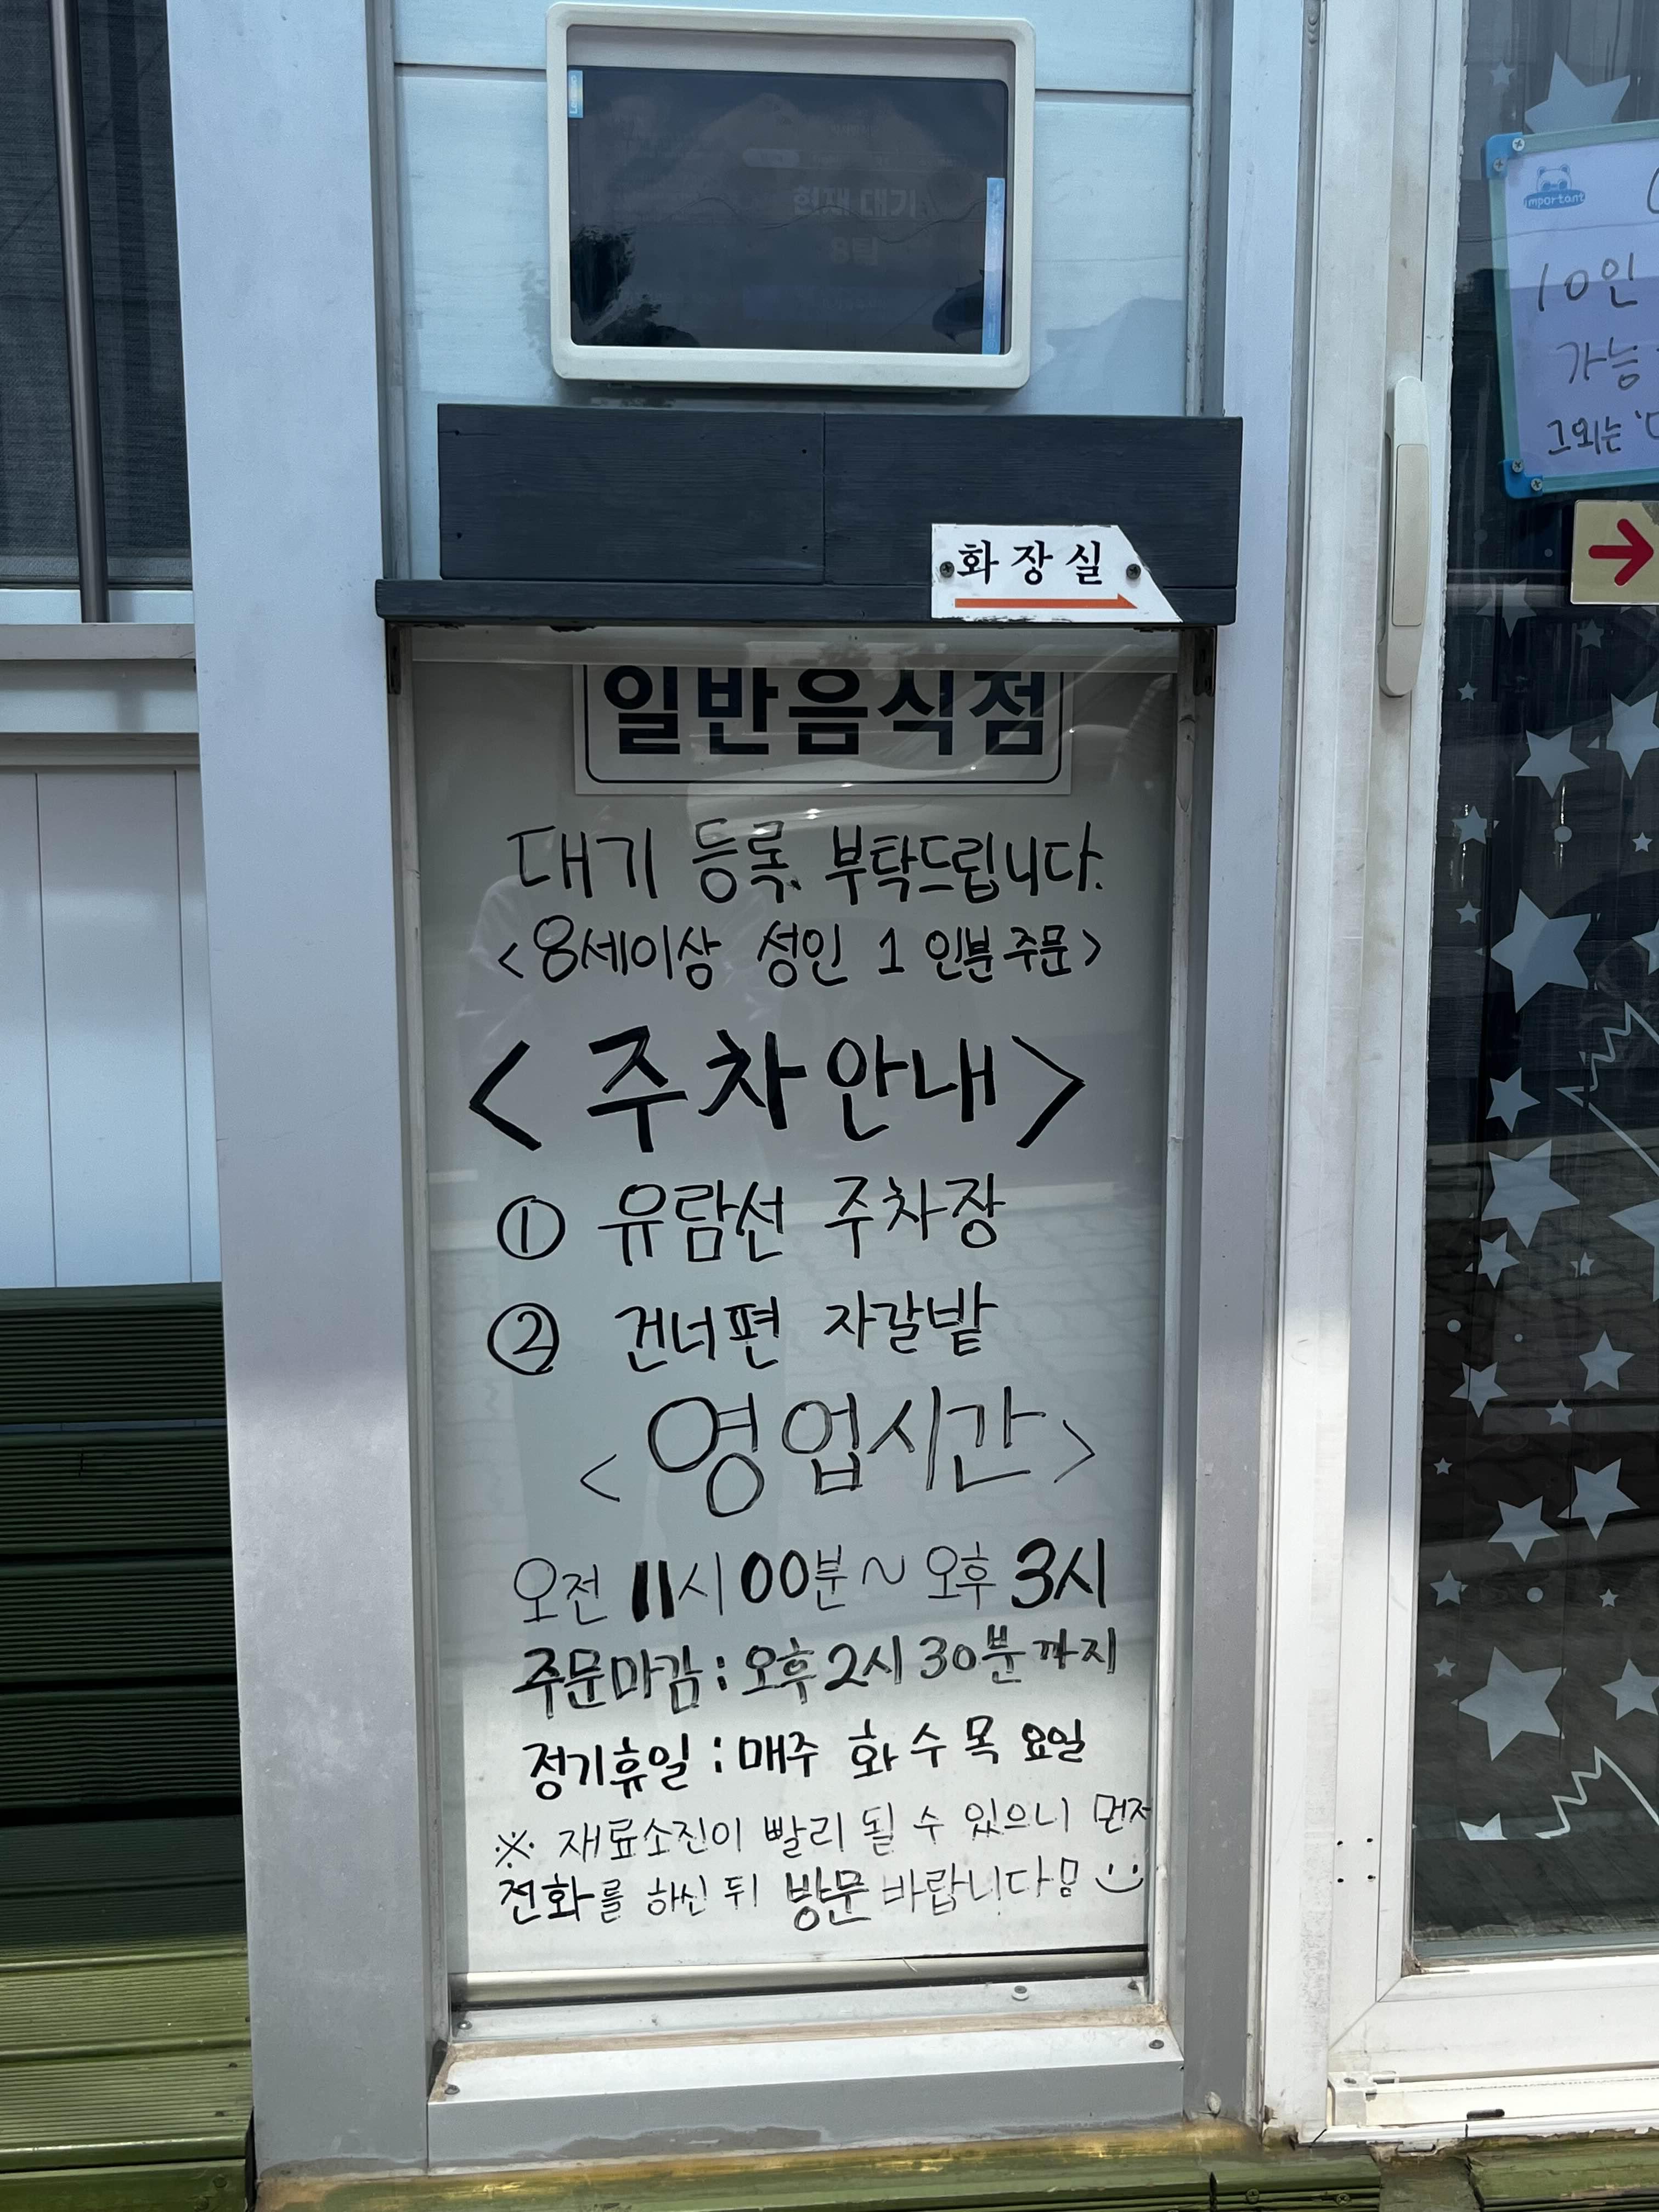 현재 대기
8팀
important
10인
가능
그외는
화장실
일반음식점
대기 등록 부탁드립니다.
<8세이상 성인 1 인분 주문>
<주차안내>
① 유람선 주차장
② 건너편 자갈밭
<영업시간>
오전 11시 00분 ~ 오후 3시
주문마감 : 오후 2시 30분까지
정기휴일 : 매주 화 수 목 요일
※ 재료소진이 빨리 될 수 있으니 먼저
전화를 하신 뒤 방문 바랍니다!